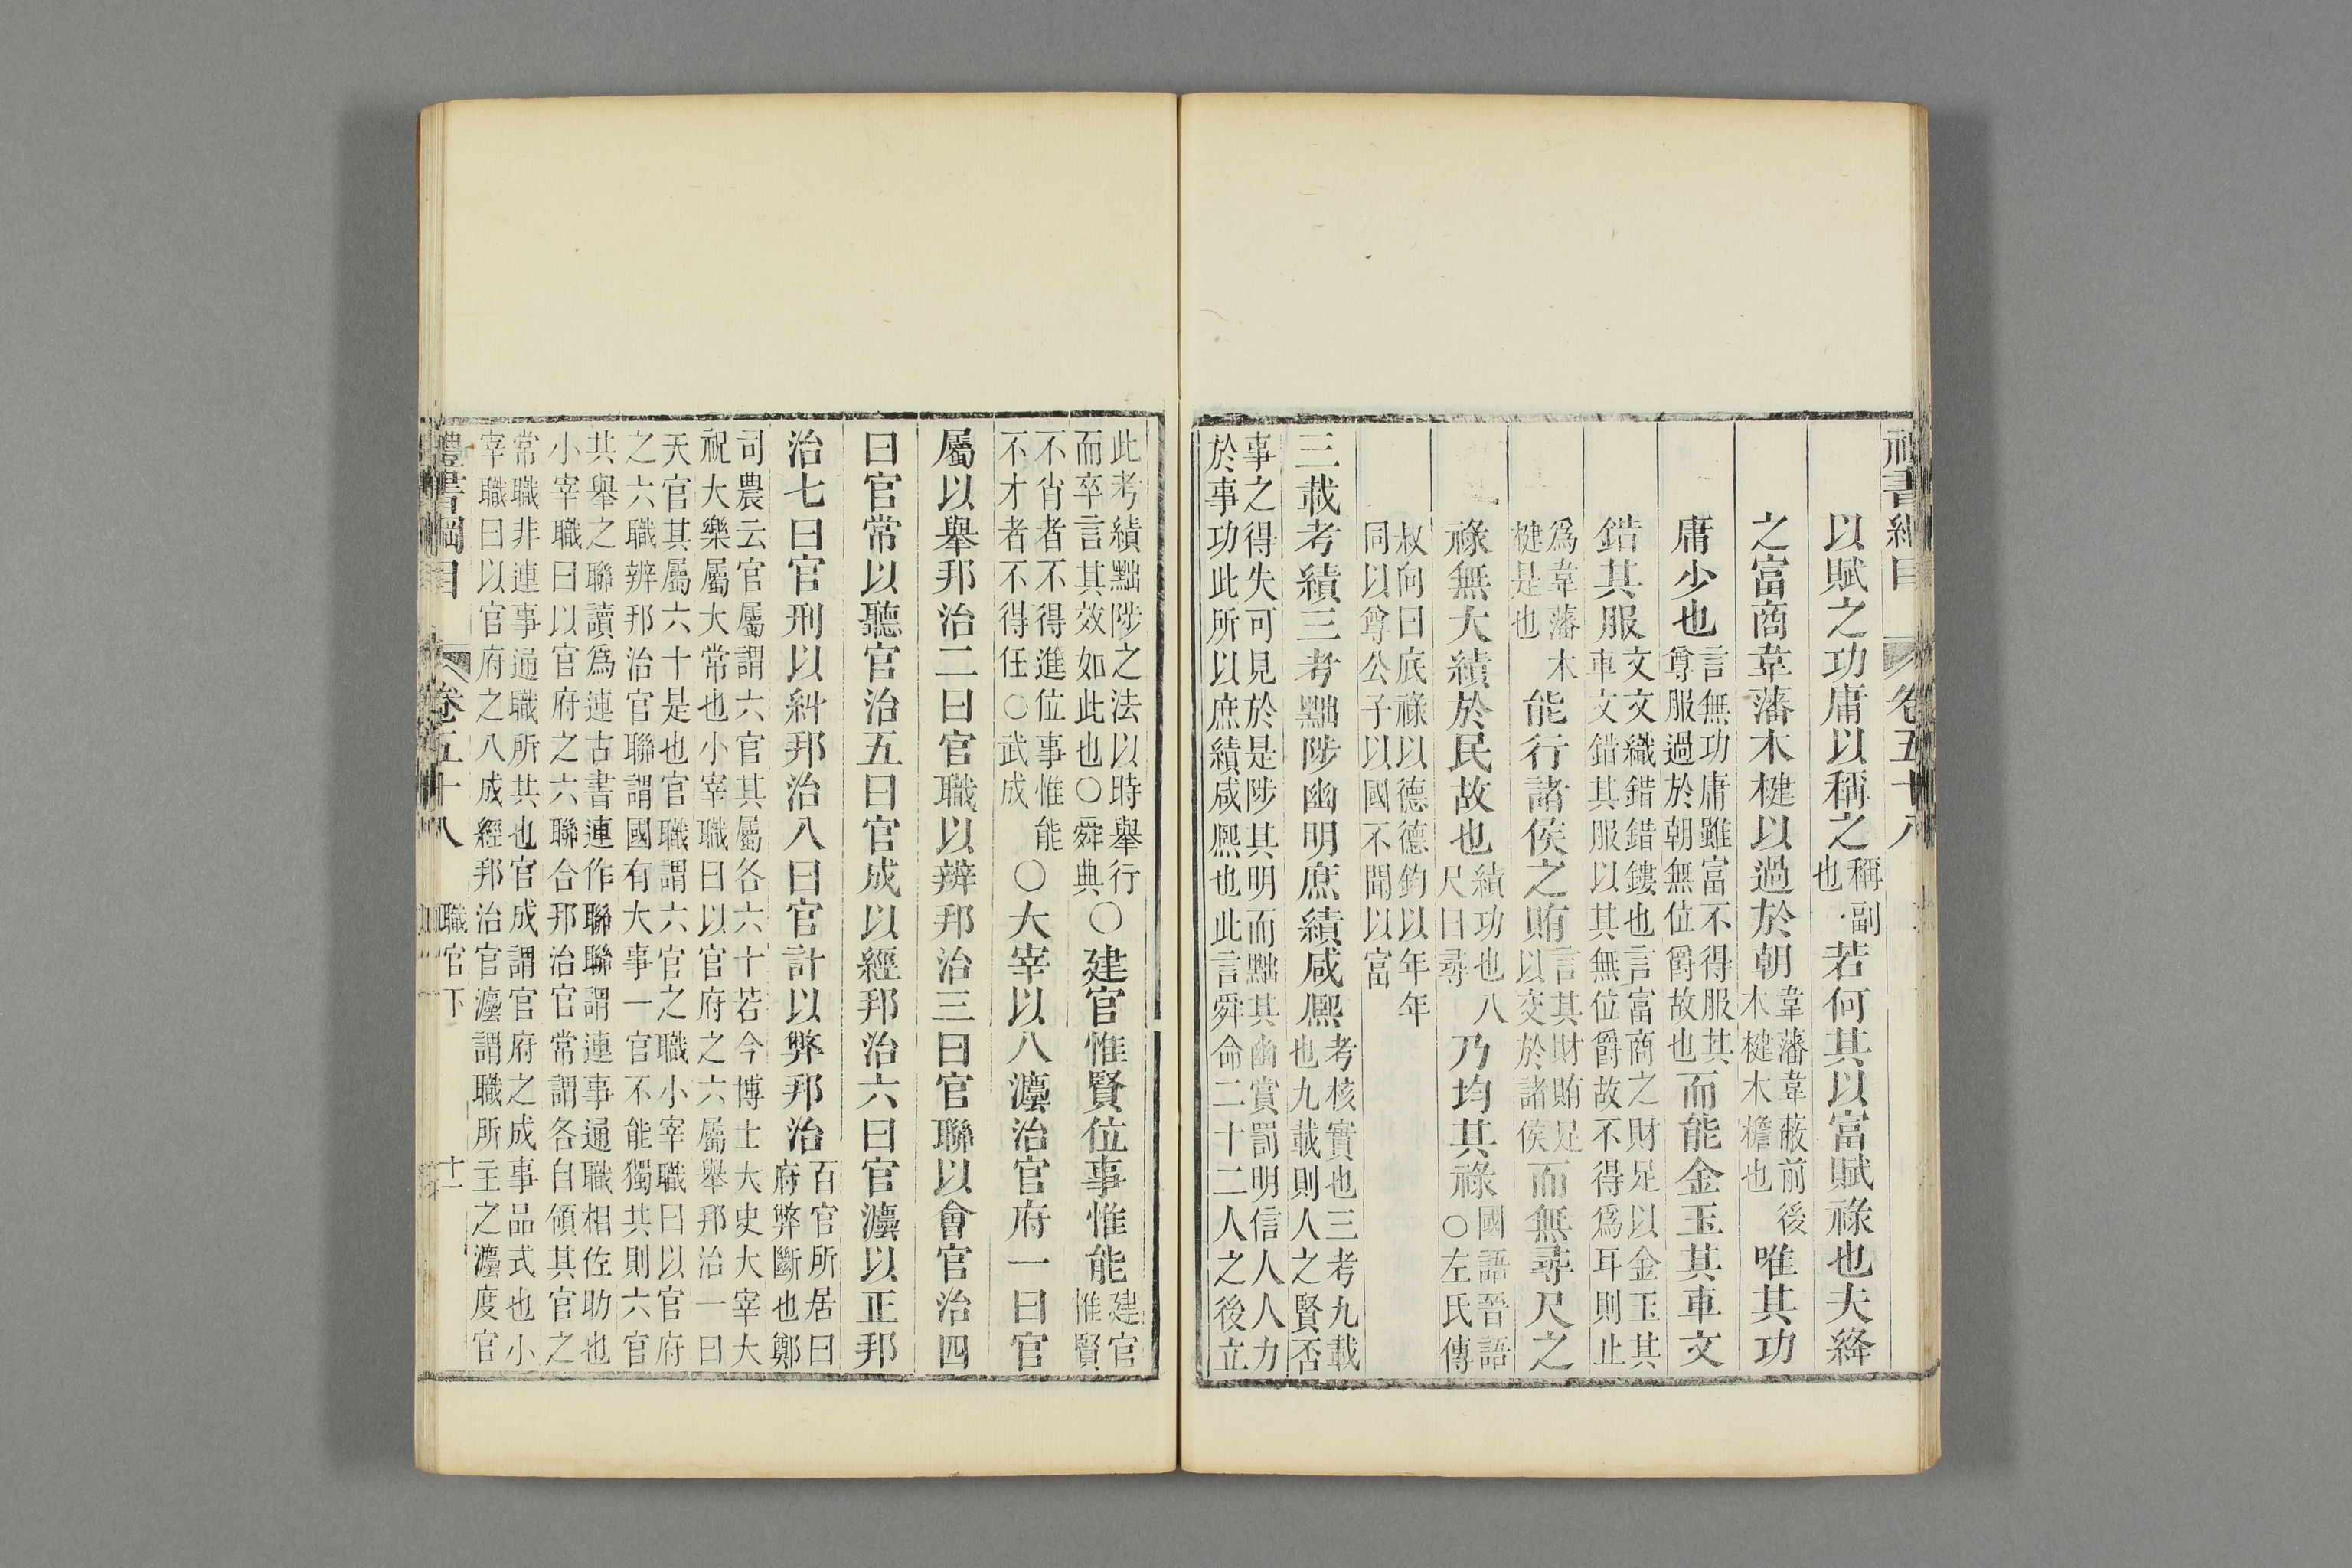 禮書綱目 卷五十八
以賦之功庸以稱之稱副也若何其以富賦祿也夫絳
之富商韋藩木楗以過於朝韋藩韋蔽前後木楗木檐也唯其功
庸少也言無功庸雖富不得服其尊服過於朝無位爵故也而能金玉其車文
錯其服文文織錯錯鏤也言富商之財足以金玉其車文錯其服以其無位爵故不得爲耳則止
爲韋藩木楗是也能行諸侯之賄言其財賄足以交於諸侯而無尋尺之
祿無大績於民故也績功也八尺曰尋乃均其祿國語晉語○左氏傳
叔向曰底祿以德德鈞以年年同以尊公子以國不聞以富
三載考績三考黜陟幽明庶績咸熙考核實也三考九載也九載則人之賢否
事之得失可見於是陟其明而黜其幽賞罰明信人人力於事功此所以庶績咸熙也此言舜命二十二人之後立
此考績黜陟之法以時舉行而卒言其效如此也○舜典○建官惟賢位事惟能建官惟賢
不肖者不得進位事惟能不才者不得任○武成○大宰以八灋治官府一曰官
屬以舉邦治二曰官職以辨邦治三曰官聯以會官治四
曰官常以聽官治五曰官成以經邦治六曰官灋以正邦
治七曰官刑以糾邦治八曰官計以弊邦治百官所居曰府弊斷也鄭
司農云官屬謂六官其屬各六十若今博士大史大宰大祝大樂屬大常也小宰職曰以官府之六屬舉邦治一曰
天官其屬六十是也官職謂六官之職小宰職曰以官府之六職辨邦治官聯謂國有大事一官不能獨共則六官
其舉之聯讀爲連古書連作聯聯謂連事通職相佐助也小宰職曰以官府之六聯合邦治官常謂各自領其官之
常職非連事通職所共也官成謂官府之成事品式也小宰職曰以官府之八成經邦治官灋謂職所主之灋度官
禮書綱目 卷五十八 職官下 十一